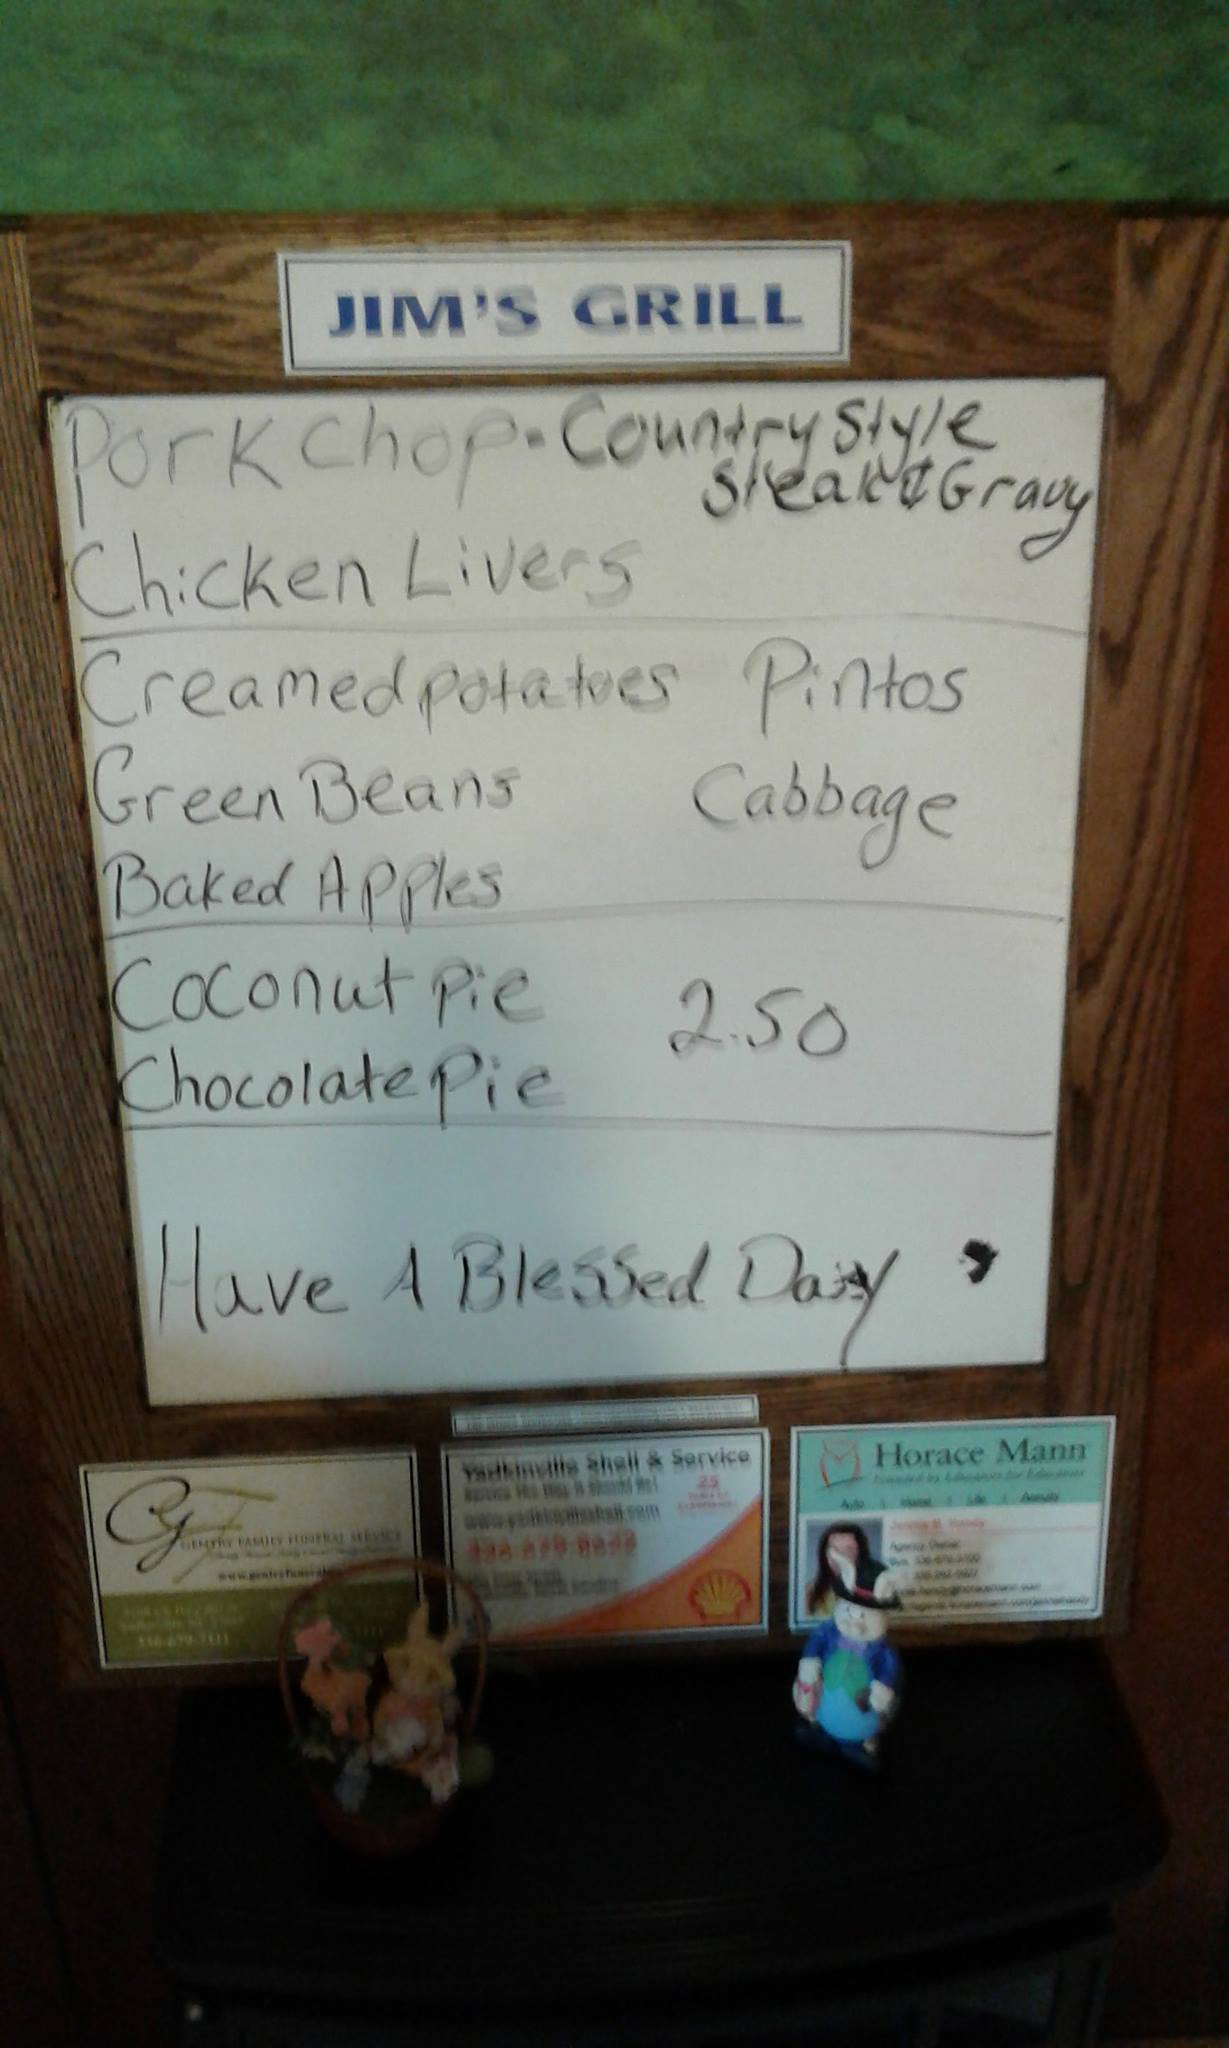 JIM'S GRILL
Pork Chop • Country Style
Steak & Gravy
Chicken Livers
Creamed potatoes Pintos
Green Beans Cabbage
Baked Apples
Coconut Pie 2.50
Chocolate Pie
Have A Blessed Day
GF
GENTRY FAMILY FUNERAL SERVICE
Yadkinville Shell & Service
25
www.yadkinvilleshell.com
336-679-8632
Horace Mann
Founded by Educators for Educators
Auto | Home | Life | Annuity